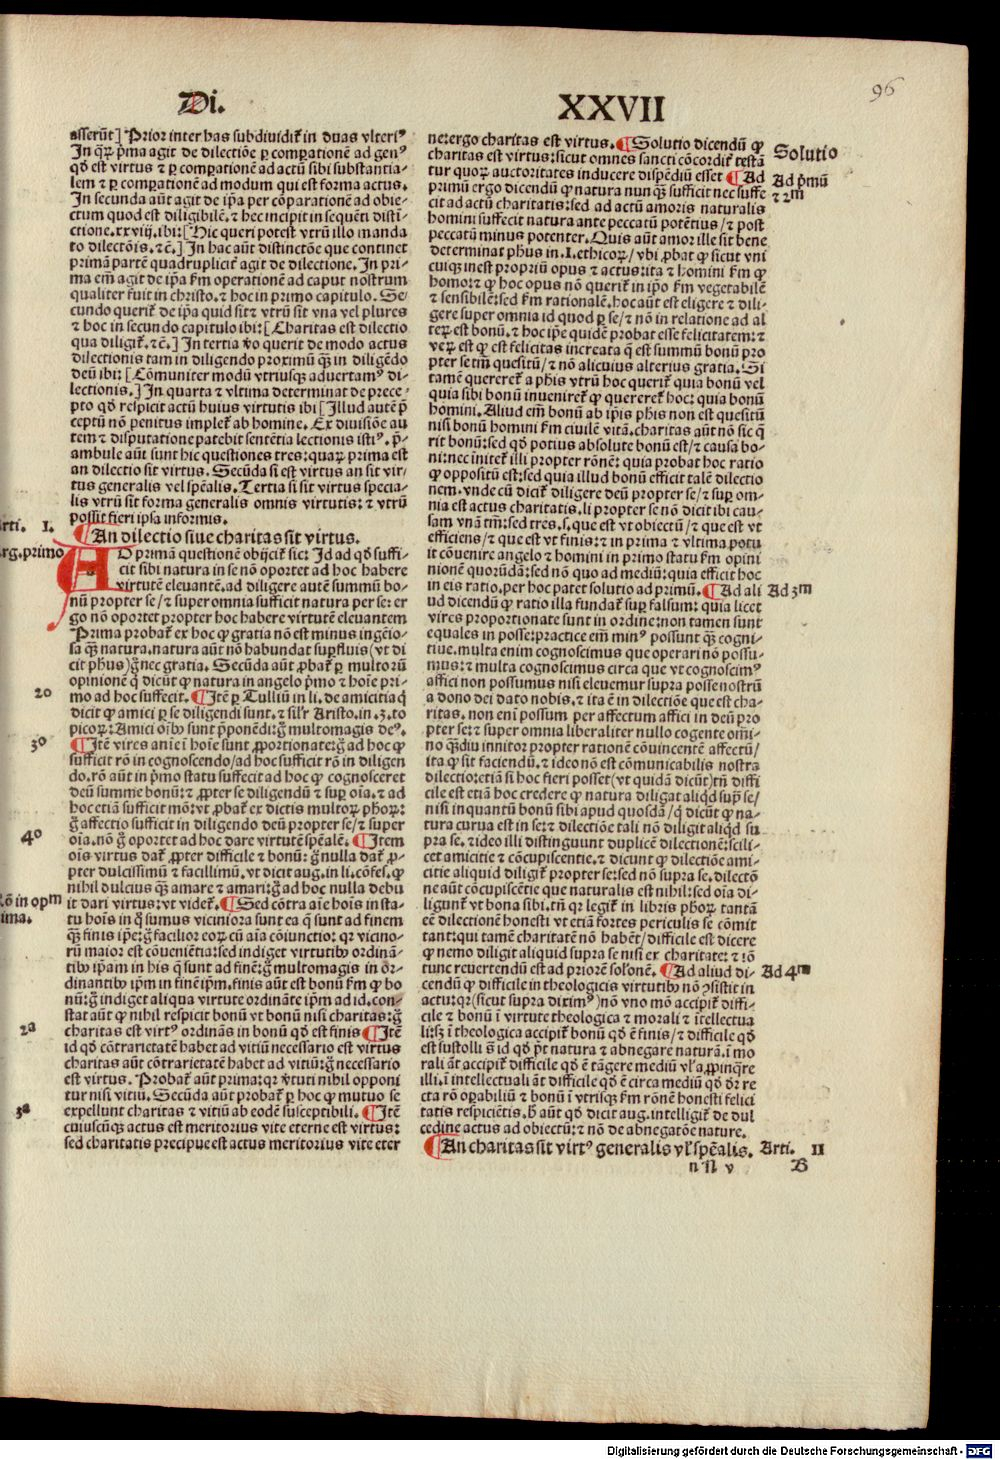 Di. XXVII
96
asserūt] Prior inter has subdividit̄ in duas vlteriꝰ
In qꝝ pͥma agit de dilectiōe ꝑ cōꝑationē ad genꝰ
qd̄ est virtus ⁊ ꝑ comꝑationē ad actū sibi substantia-
lem ⁊ ꝑ comꝑationē ad modum qui est forma actus.
In secunda aūt agit de ip̄a per cōparationē ad obie-
ctum quod est diligibilē. ⁊ hec incipit in sequēti disti-
ctione. xxviij. ibi: [Hic queri potest vtrū illo manda
to dilectōis. ⁊c̄.] In hac aūt distinctōe que continet
primā partē quadruplicit̄ agit de dilectione. In pri-
ma em̄ agit de ip̄a ẜm operationē ad caput nostrum
qualiter fuit in christo. ⁊ hoc in primo capitulo. Se-
cundo querit̄ de ip̄a quid sit: ⁊ vtrū sit vna vel plures
⁊ hoc in secundo capitulo ibi: [Charitas est dilectio
qua diligit̄. ⁊c̄.] In tertia v̄o querit de modo actus
dilectionis tam in diligendo proximū q̄ꝫ in diligēdo
deū ibi: [Cōmuniter modū vtriusqꝫ advertamꝰ di-
lectionis.] In quarta ⁊ vltima determinat de prece-
pto qd̄ respicit actū huius virtutis ibi [Illud autē p̄
ceptū nō penitus implet̄ ab homine. Ex divisiōe au
tem ⁊ disputatione patebit sentētia lectionis istiꝰ. p̄-
ambule aūt sunt hic questiones tres: quaꝝ prima est
an dilectio sit virtus. Secūda si est virtus an sit vir-
tus generalis vel sp̄ealis. Tertia si sit virtus specia-
lis vtrū sit forma generalis omnis virtutis: ⁊ vtrū
possit fieri ipsa informis.
rti. I. ¶ An dilectio siue charitas sit virtus.
rg. primo AD primā questionē obijcit̄ sic: Id ad qd̄ suffi-
cit sibi natura in se nō oportet ad hoc habere
virtutē elevantē. ad diligere autē summū bo-
nū propter se/⁊ super omnia sufficit natura per se: er
go nō oportet propter hoc habere virtutē elevantem
Prima probat̄ ex hoc ꝙ gratia nō est minus ingēio-
sa q̄ꝫ natura. natura aūt nō habundat suꝑfluis (vt di
cit ph̄us) g̊ nec gratia. Secūda aūt ꝓbat̄ ꝑ multorū
opinionē q̇ dicūt ꝙ natura in angelo pͥmo ⁊ hoīe pri-
20 mo ad hoc suffecit. ¶ Itē ꝑ Tulliū in li. de amicitia q̇
dicit ꝙ amici ꝑ se diligendi sunt. ⁊ sil̄r Aristo. in .3. to
picoꝝ: Amici oībꝰ sunt p̄ponēdi: g̊ multomagis deꝰ.
30 ¶ Itē vires aīe ī hoīe sunt ꝓportionate: g̊ ad hoc ꝙ
sufficit rō in cognoscendo/ad hoc sufficit rō in diligen
do. rō aūt in pͥmo statu suffecit ad hoc ꝙ cognosceret
deū summe bonū: ⁊ ꝓpter se diligendū ⁊ suꝑ oīa. ⁊ ad
hoc etiā sufficit mō: vt ꝓbat̄ ex dictis multoꝝ ph̄oꝝ:
g̊ affectio sufficit in diligendo deū propter se/⁊ super
40 oīa. nō g̊ oportet ad hoc dare virtutē sp̄ealē. ¶ Item
oīs virtus dat̄ ꝓpter difficile ⁊ bonū: g̊ nulla dat̄ ꝓ-
pter dulcissimū ⁊ facillimū. vt dicit aug. in li. cōfes. ꝙ
nihil dulcius q̄ꝫ amare ⁊ amari: g̊ ad hoc nulla debu
Rō in opm̄ it dari virtus: vt videt̄. ¶ Sed cōtra aīe hoīs in sta-
ima. tu hoīs in q̊ sumus viciniora sunt ea q̄ sunt ad finem
q̄ꝫ finis ip̄e: g̊ facilior eoꝝ cū aīa cōiunctio: qꝛ vicino-
rū maior est cōueniētia: sed indiget virtutibꝰ ordinā-
tibꝰ ip̄am in his q̄ sunt ad finē: g̊ multomagis in or-
dinantibꝰ ip̄m in finē ip̄m. finis aūt est bonū ẜm ꝙ bo
nū: g̊ indiget aliqua virtute ordināte ip̄m ad id. con-
stat aūt ꝙ nihil respicit bonū vt bonū nisi charitas: g̊
2a charitas est virtꝰ ordinās in bonū qd̄ est finis ¶ Itē
id qd̄ cōtrarietatē habet ad vitiū necessario est virtus
charitas aūt cōtrarietatē habet ad vitiū: g̊ necessario
est virtus. Probat̄ aūt prima: qꝛ v̄tuti nihil opponi
tur nisi vitiū. Secūda aūt probat̄ ꝑ hoc ꝙ mutuo se
3a expellunt charitas ⁊ vitiū ab eodē susceptibili. ¶ Itē
cuiuscūqꝫ actus est meritorius vite eterne est virtus:
sed charitatis precipue est actus meritorius vite eter
ne: ergo charitas est virtus. ¶ Solutio dicendū ꝙ Solutio
charitas est virtus: sicut omnes sancti cōcordit̄ testā
tur quoꝝ auctoritates inducere dispēdiū esset ¶ Ad Ad pͥmū
primū ergo dicendū ꝙ natura nun q̄ꝫ sufficit nec suffe ⁊ 2m̄
cit ad actū charitatis: sed ad actū amoris naturalis
homini suffecit natura ante peccatū potētius/⁊ post
peccatū minus potenter. Quis aūt amor ille sit bene
determinat ph̄us in .I. ethicoꝝ/vbi ꝓbat ꝙ sicut vni
cuiqꝫ inest propriū opus ⁊ actus: ita ⁊ homini ẜm ꝙ
homo: ⁊ ꝙ hoc opus nō querit̄ in ip̄o ẜm vegetabilē
⁊ sensibilē: sed ẜm rationalē. hoc aūt est eligere ⁊ dili-
gere super omnia id quod ꝑ se/⁊ nō in relatione ad al
teꝝ est bonū. ⁊ hoc ip̄e quidē probat esse felicitatem: ⁊
veꝝ est ꝙ est felicitas increata q̄ est summū bonū pro
pter se tm̄ quesitū/⁊ nō alicuius alterius gratia. Si
tamē quereret̄ a ph̄is vtrū hoc querit̄ quia bonū vel
quia sibi bonū invenirēt ꝙ quereret̄ hoc: quia bonū
homini. Aliud em̄ bonū ab ip̄is ph̄is non est quesitū
nisi bonū homini ẜm ciuilē vitā. charitas aūt nō sic q̄
rit bonū: sed qd̄ potius absolute bonū est/⁊ causa bo-
ni: nec īnitet̄ illi propter rōnē: quia probat hoc ratio
ꝙ oppositū est: sed quia illud bonū efficit talē dilectio
nem. vnde cū dicit̄ diligere deū propter se/⁊ suꝑ om-
nia est actus charitatis. li propter se nō dicit ibi cau-
sam vnā tm̄: sed tres. s. que est vt obiectū/⁊ que est vt
efficiens/⁊ que est vt finis: ⁊ in prima ⁊ vltima potu
it cōuenire angelo ⁊ homini in primo statu ẜm opini
nionē quorūdā: sed nō quo ad mediū: quia efficit hoc
in eis ratio. per hoc patet solutio ad primū. ¶ Ad ali Ad 3m̄
ud dicendū ꝙ ratio illa fundat̄ suꝑ falsum: quia licet
vires proportionate sunt in ordine: non tamen sunt
equales in posse: practice em̄ minꝰ possunt q̄ꝫ cogni-
tiue. multa enim cognoscimus que operari nō possu-
mus: ⁊ multa cognoscimus circa que vt cognoscimꝰ
affici non possumus nisi elevemur supra posse nostrū
a dono dei dato nobis. ⁊ ita ē in dilectiōe que est cha-
ritas. non eni possum per affectum affici in deū pro
pter se: ⁊ super omnia liberaliter nullo cogente omī-
no q̄ꝫdiu innitor propter rationē cōuincentē affectū/
ita ꝙ sit faciendū. ⁊ ideo nō est cōmunicabilis nostra
dilectio: etiā si hoc fieri posset (vt quidā dicūt) tn̄ diffi
cile est etiā hoc credere ꝙ natura diligat aliqd̄ supͣ se/
nisi inquantū bonū sibi apud quosdā/q̇ dicūt ꝙ na-
tura curua est in se: ⁊ dilectiōe tali nō diligit aliqd̄ su
pra se. ⁊ ideo illi distinguunt duplicē dilectionē: scili-
cet amicitie ⁊ cōcupiscentie. ⁊ dicunt ꝙ dilectiōe ami-
citie aliquid diligit̄ propter se: sed nō supra se. dilectō
ne aūt cōcupiscētie que naturalis est nihil: sed oīa di-
ligunt̄ vt bona sibi. tn̄ qꝛ legit̄ in libris ph̄oꝝ tantā
eē dilectionē honesti vt etiā fortes periculis se cōmit
tant: qui tamē charitatē nō habēt/difficile est dicere
ꝙ nemo diligit aliquid supra se nisi ex charitate: ⁊ iō
tunc revertendū est ad priorē sol̄onē. ¶ Ad aliud di- Ad 4m̄
cendū ꝙ difficile in theologicis virtutibꝰ nō ꝯsistit in
actu: qꝛ (sicut supra diximꝰ) nō vno mō accipit̄ diffi-
cile ⁊ bonū ī virtute theologica ⁊ morali ⁊ ītellectua
li: sꝫ ī theologica accipit̄ bonū qd̄ ē finis/⁊ difficile qd̄
est sustolli s̄ id qd̄ p̄t natura ⁊ abnegare naturā. ī mo
rali āt accipit̄ difficile qd̄ ē tāgere mediū vl̓ a ꝓpinq̄re
illi. ī intellectuali āt difficile qd̄ ē circa mediū qd̄ dr̄ re
cta rō oꝑabiliū ⁊ bonū ī vtrisqꝫ ẜm rōnē honesti felici
tatis respiciētis. h̄ aūt qd̄ dicit aug. intelligit̄ de dul
cedine actus ad obiectū: ⁊ nō de abnegatōe nature.
¶ An charitas sit virtꝰ generalis vl̓ sp̄ealis. Arti. II
n n v B
Digitalisierung gefördert durch die Deutsche Forschungsgemeinschaft - DFG